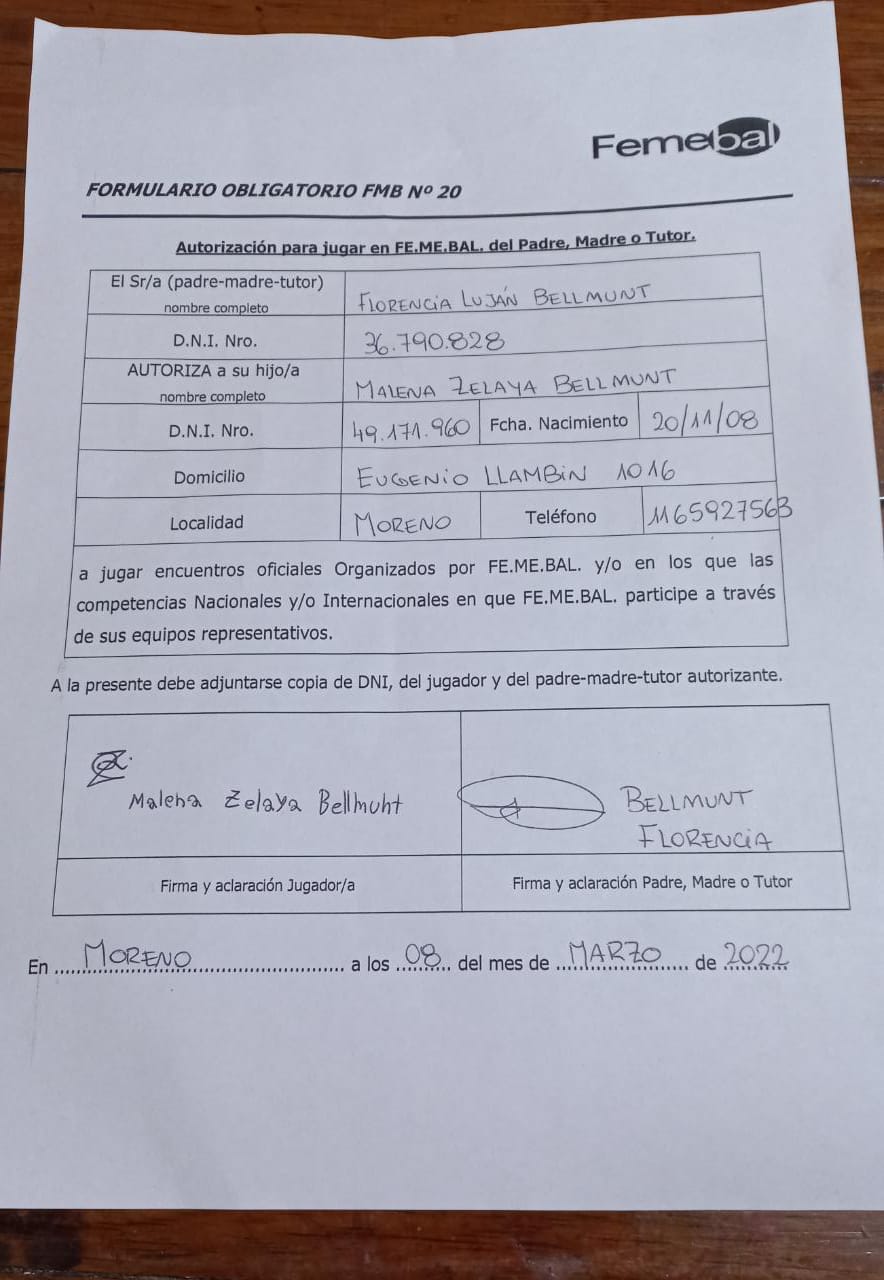 Femebal
FORMULARIO OBLIGATORIO FMB Nº 20
Autorización para jugar en FE.ME.BAL. del Padre, Madre o Tutor.
El Sr/a (padre-madre-tutor)
nombre completo
FLORENCIA LUJÁN BELLMUNT
D.N.I. Nro.
36.790.828
AUTORIZA a su hijo/a
nombre completo
MALENA ZELAYA BELLMUNT
D.N.I. Nro.
49.171.960
Fcha. Nacimiento
20/11/08
Domicilio
EUGENIO LLAMBIN 1016
Localidad
MORENO
Teléfono
1165927563
a jugar encuentros oficiales Organizados por FE.ME.BAL. y/o en los que las
competencias Nacionales y/o Internacionales en que FE.ME.BAL. participe a través
de sus equipos representativos.
A la presente debe adjuntarse copia de DNI, del jugador y del padre-madre-tutor autorizante.
Malena Zelaya Bellmunt
BELLMUNT
FLORENCIA
Firma y aclaración Jugador/a
Firma y aclaración Padre, Madre o Tutor
En MORENO a los 08 del mes de MARZO de 2022